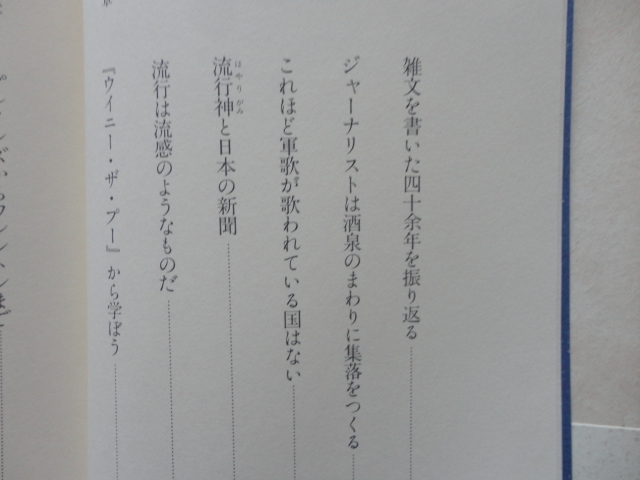 雑文を書いた四十余年を振り返る
ジャーナリストは酒泉のまわりに集落をつくる
これほど軍歌が歌われている国はない
はやりがみ
流行神と日本の新聞
流行は流感のようなものだ
『ウイニー・ザ・プー』から学ぼう
章